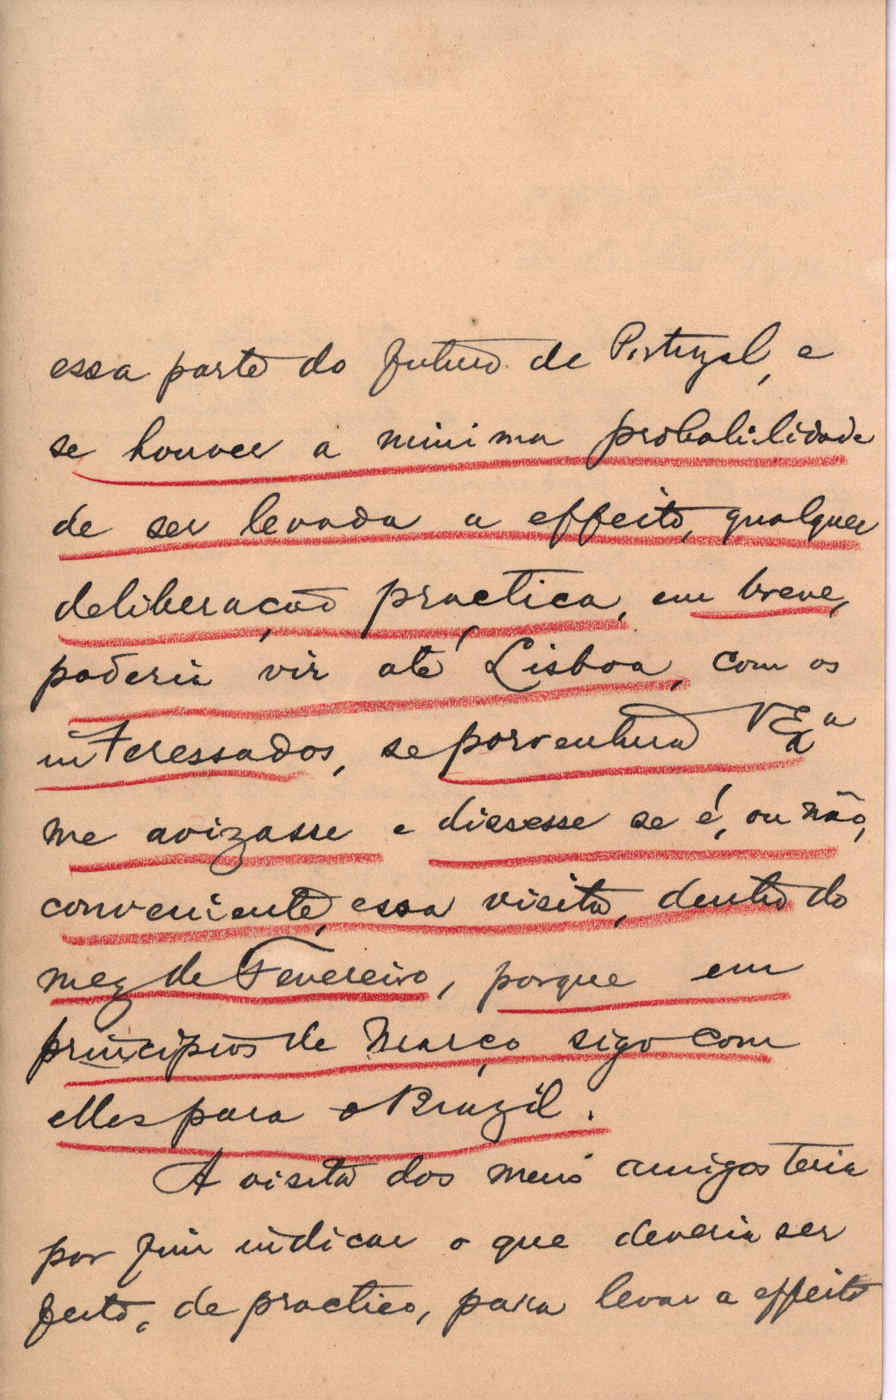 essa parte do futuro de Portugal, e
se houver a minima probabilidade
de ser levada a effeito, qualquer
deliberação practica, em breve,
poderia vir até Lisboa, com os
interessados, se porventura V Exa
me avizasse e dissesse se é, ou não,
conveniente, essa visita, dentro do
mez de Fevereiro, porque em
principios de Março sigo com
elles para o Brazil.
A visita dos meus amigos teria
por fim indicar o que deveria ser
feito, de practico, para levar a effeito